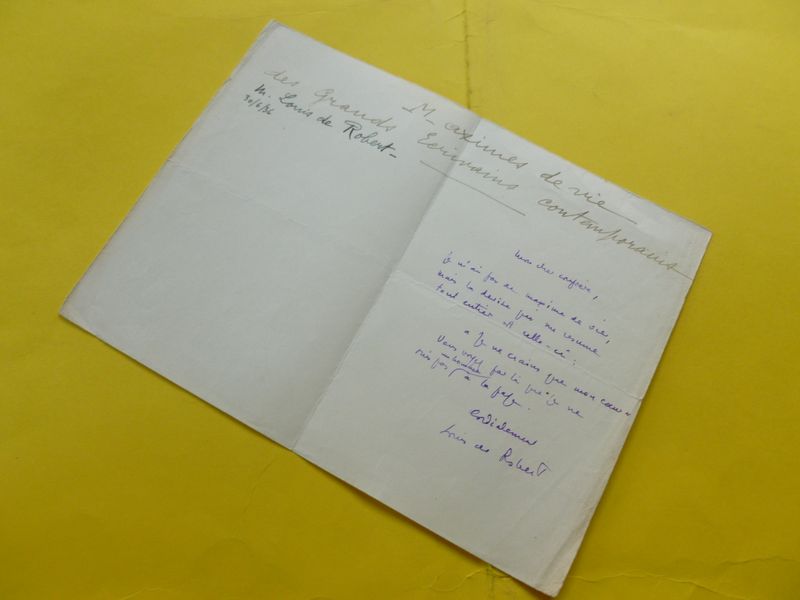 Maximes de vie
des Grands Ecrivains contemporains
M. Louis de Robert
30/6/36
Mon cher confrère,
je n'ai pas de maxime de vie,
mais la devise qui me résume
tout entier est celle-ci :
« Je ne crains que mon cœur »
Vous voyez par là que je ne
suis pas homme à la page.
Cordialement
Louis de Robert